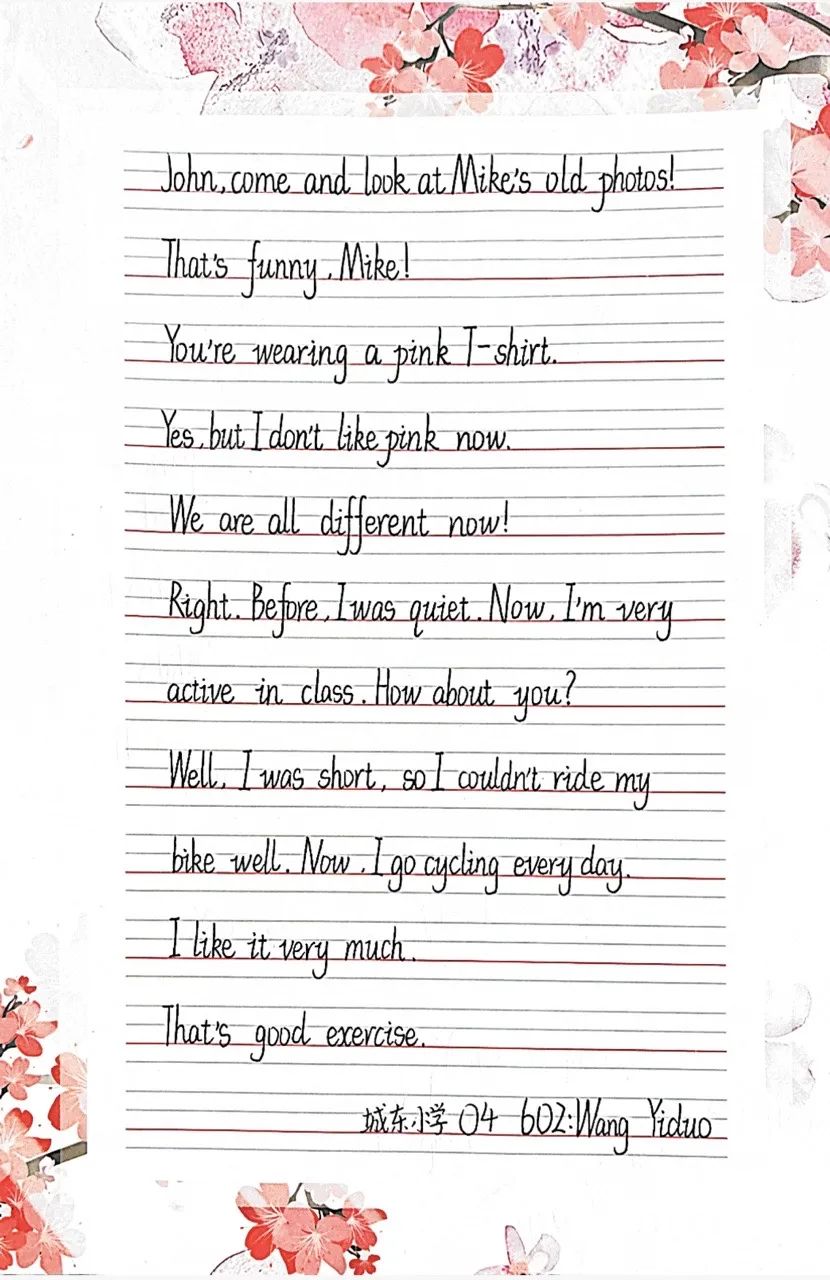 John, come and look at Mike's old photos!
That's funny, Mike!
You're wearing a pink T-shirt.
Yes, but I don't like pink now.
We are all different now!
Right. Before, I was quiet. Now, I'm very
active in class. How about you?
Well, I was short, so I couldn't ride my
bike well. Now, I go cycling every day.
I like it very much.
That's good exercise.
城东小学 04 602:Wang Yiduo